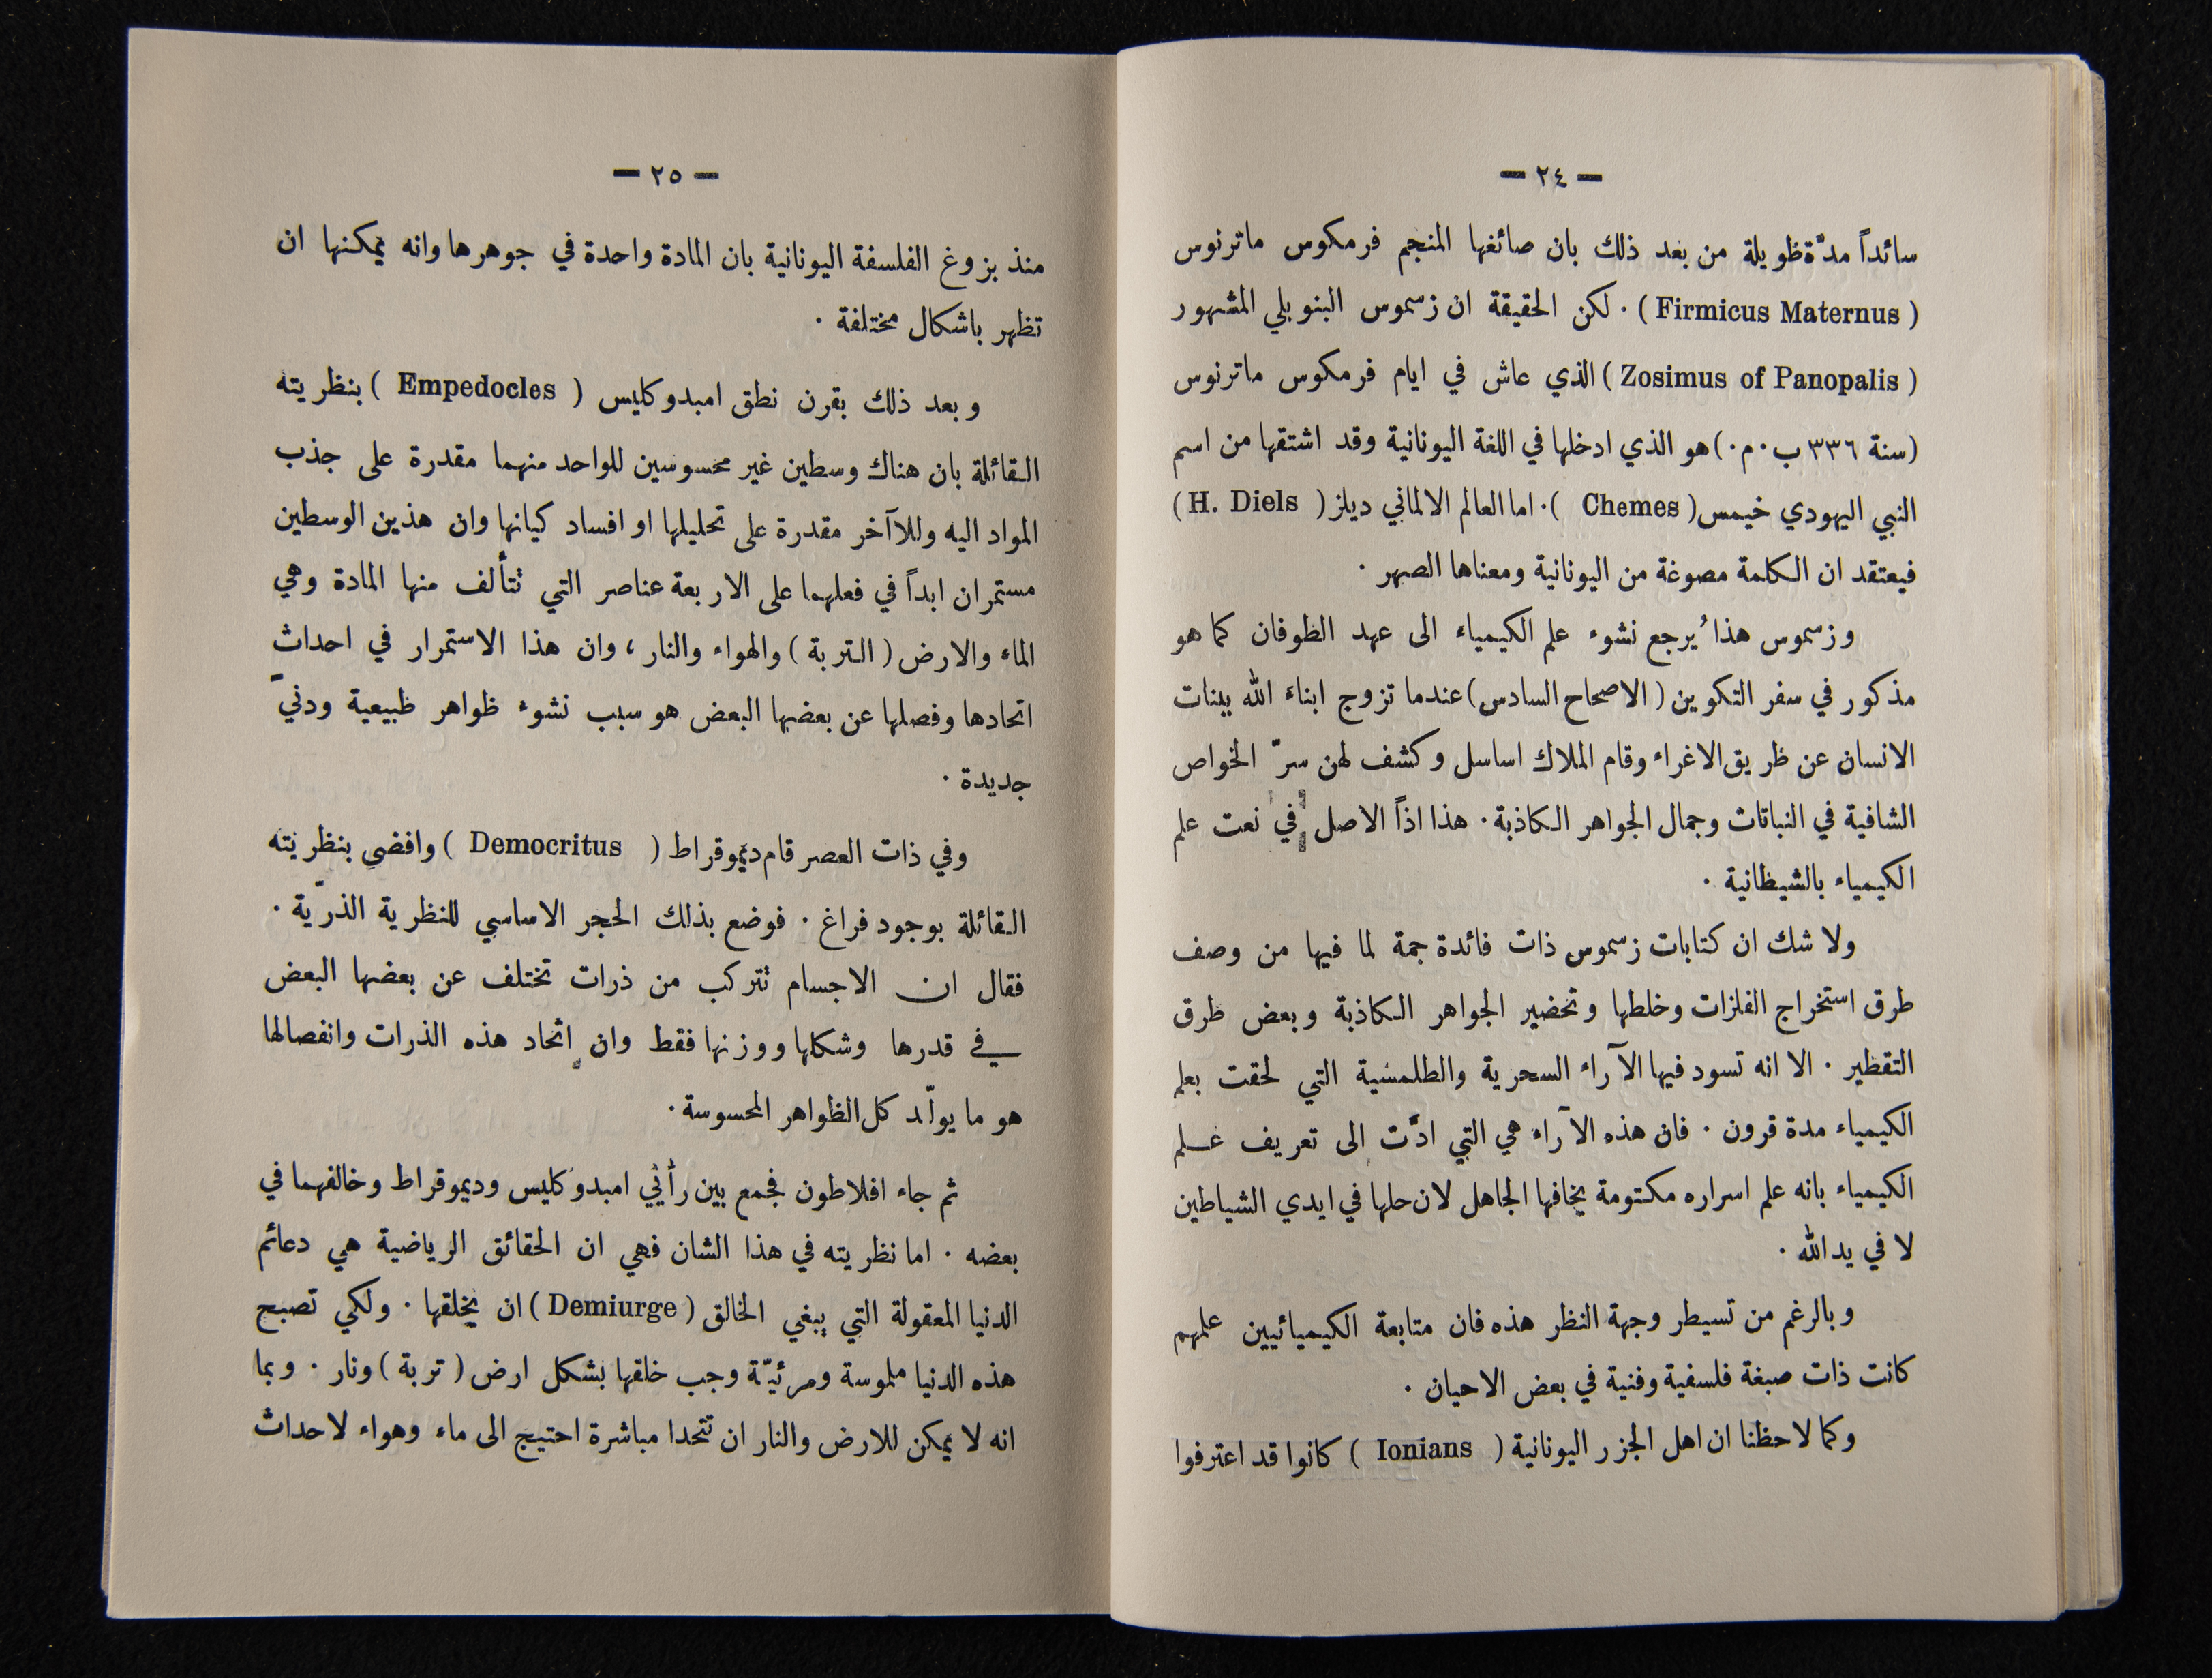 — ٢٤ —
سائداً مدَّة طويلة من بعد ذلك بان صائغها المنجم فرمكوس ماترنوس
( Firmicus Maternus ) ٠ لكن الحقيقة ان زسموس البنوبلي المشهور
( Zosimus of Panopalis ) الذي عاش في ايام فرمكوس ماترنوس
(سنة ٣٣٦ ب ٠ م ٠) هو الذي ادخلها في اللغة اليونانية وقد اشتقها من اسم
النبي اليهودي خيمس ( Chemes ) ٠ اما العالم الالماني ديلز ( H. Diels )
فيعتقد ان الكلمة مصوغة من اليونانية ومعناها الصهر ٠
وزسموس هذا يُرجع نشوء علم الكيمياء الى عهد الطوفان كما هو
مذكور في سفر التكوين ( الاصحاح السادس ) عندما تزوج ابناء الله ببنات
الانسان عن طريق الاغراء وقام الملاك اساسل وكشف لهن سرّ الخواص
الشافية في النباتات وجمال الجواهر الكاذبة ٠ هذا اذاً الاصل في نعت علم
الكيمياء بالشيطانية ٠
ولا شك ان كتابات زسموس ذات فائدة جمة لما فيها من وصف
طرق استخراج الفلزات وخلطها وتحضير الجواهر الكاذبة وبعض طرق
التقطير ٠ الا انه تسود فيها الآراء السحرية والطلمسية التي لحقت بعلم
الكيمياء مدة قرون ٠ فان هذه الآراء هي التي ادَّت الى تعريف علم
الكيمياء بانه علم اسراره مكتومة يخافها الجاهل لان حلها في ايدي الشياطين
لا في يد الله ٠
وبالرغم من تسيطر وجهة النظر هذه فان متابعة الكيميائيين علمهم
كانت ذات صبغة فلسفية وفنية في بعض الاحيان ٠
وكما لاحظنا ان اهل الجزر اليونانية ( Ionians ) كانوا قد اعترفوا
— ٢٥ —
منذ بزوغ الفلسفة اليونانية بان المادة واحدة في جوهرها وانه يمكنها ان
تظهر باشكال مختلفة ٠
وبعد ذلك بقرن نطق امبدوكليس ( Empedocles ) بنظريته
القائلة بان هناك وسطين غير محسوسين للواحد منهما مقدرة على جذب
المواد اليه وللاآخر مقدرة على تحليلها او افساد كيانها وان هذين الوسطين
مستمران ابداً في فعلهما على الاربعة عناصر التي تتألف منها المادة وهي
الماء والارض ( التربة ) والهواء والنار ، وان هذا الاستمرار في احداث
اتحادها وفصلها عن بعضها البعض هو سبب نشوء ظواهر طبيعية ودنيَ
جديدة ٠
وفي ذات العصر قام ديموقراط ( Democritus ) وافضى بنظريته
القائلة بوجود فراغ ٠ فوضع بذلك الحجر الاساسي للنظرية الذرّية ٠
فقال ان الاجسام تتركب من ذرات تختلف عن بعضها البعض
في قدرها وشكلها ووزنها فقط وان اتحاد هذه الذرات وانفصالها
هو ما يولّد كل الظواهر المحسوسة ٠
ثم جاء افلاطون فجمع بين رأيي امبدوكليس وديموقراط وخالفهما في
بعضه ٠ اما نظريته في هذا الشان فهي ان الحقائق الرياضية هي دعائم
الدنيا المعقولة التي يبغي الخالق ( Demiurge ) ان يخلقها ٠ ولكي تصبح
هذه الدنيا ملموسة ومرئيّة وجب خلقها بشكل ارض ( تربة ) ونار ٠ وبما
انه لا يمكن للارض والنار ان تتحدا مباشرة احتيج الى ماء وهواء لاحداث